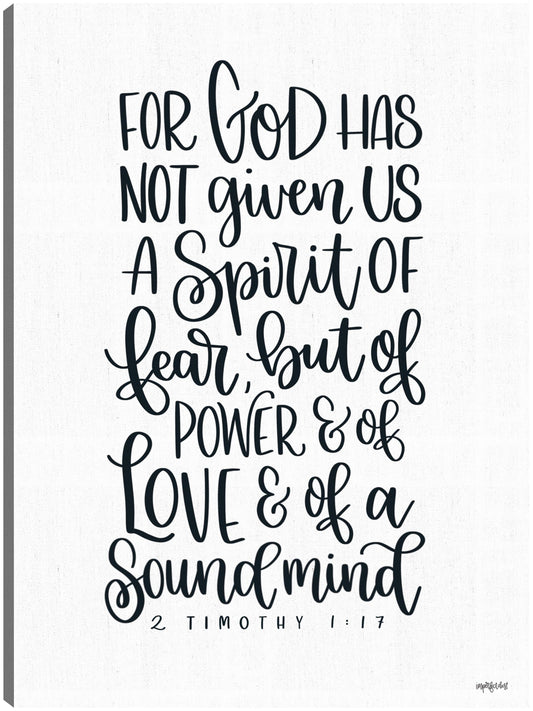 FOR GOD HAS
NOT given US
A Spirit OF
fear, but of
POWER & of
LOVE & of a
Sound mind
2 TIMOTHY 1:17
imperfect dust